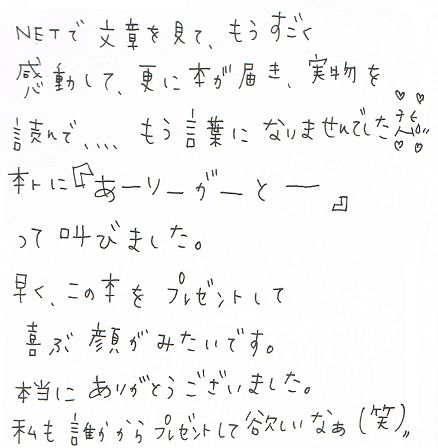 NETで文章を見て、もうすごく
感動して、更に本が届き、実物を
読んで、.... もう言葉になりませんでした
本トに『あーりーがーとー』
って叫びました。
早く、この本をプレゼントして
喜ぶ顔がみたいです。
本当にありがとうございました。
私も誰かからプレゼントして欲しいなぁ(笑)〃